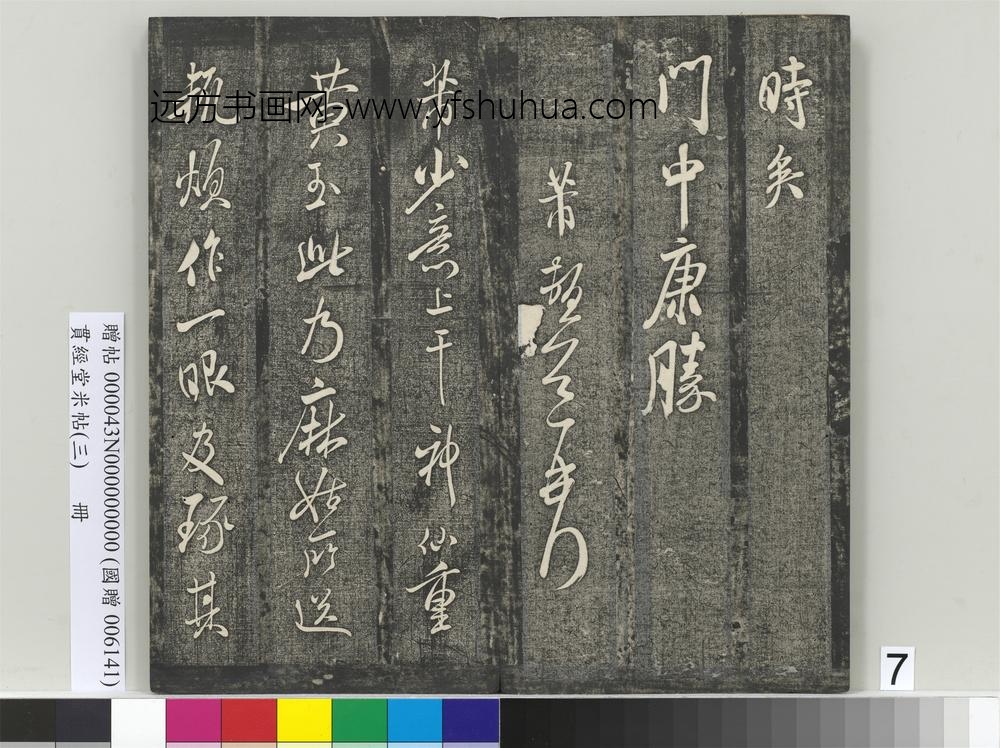 時矣
門中康勝
芾
芾少意上干神仙重
黄玉此乃麻姑所送
煩作一眼及琢其
远方书画网-www.yfshuhua.com
贈帖 000043N000000000 (國贈 006141)
貫經堂米帖(三) 冊
7